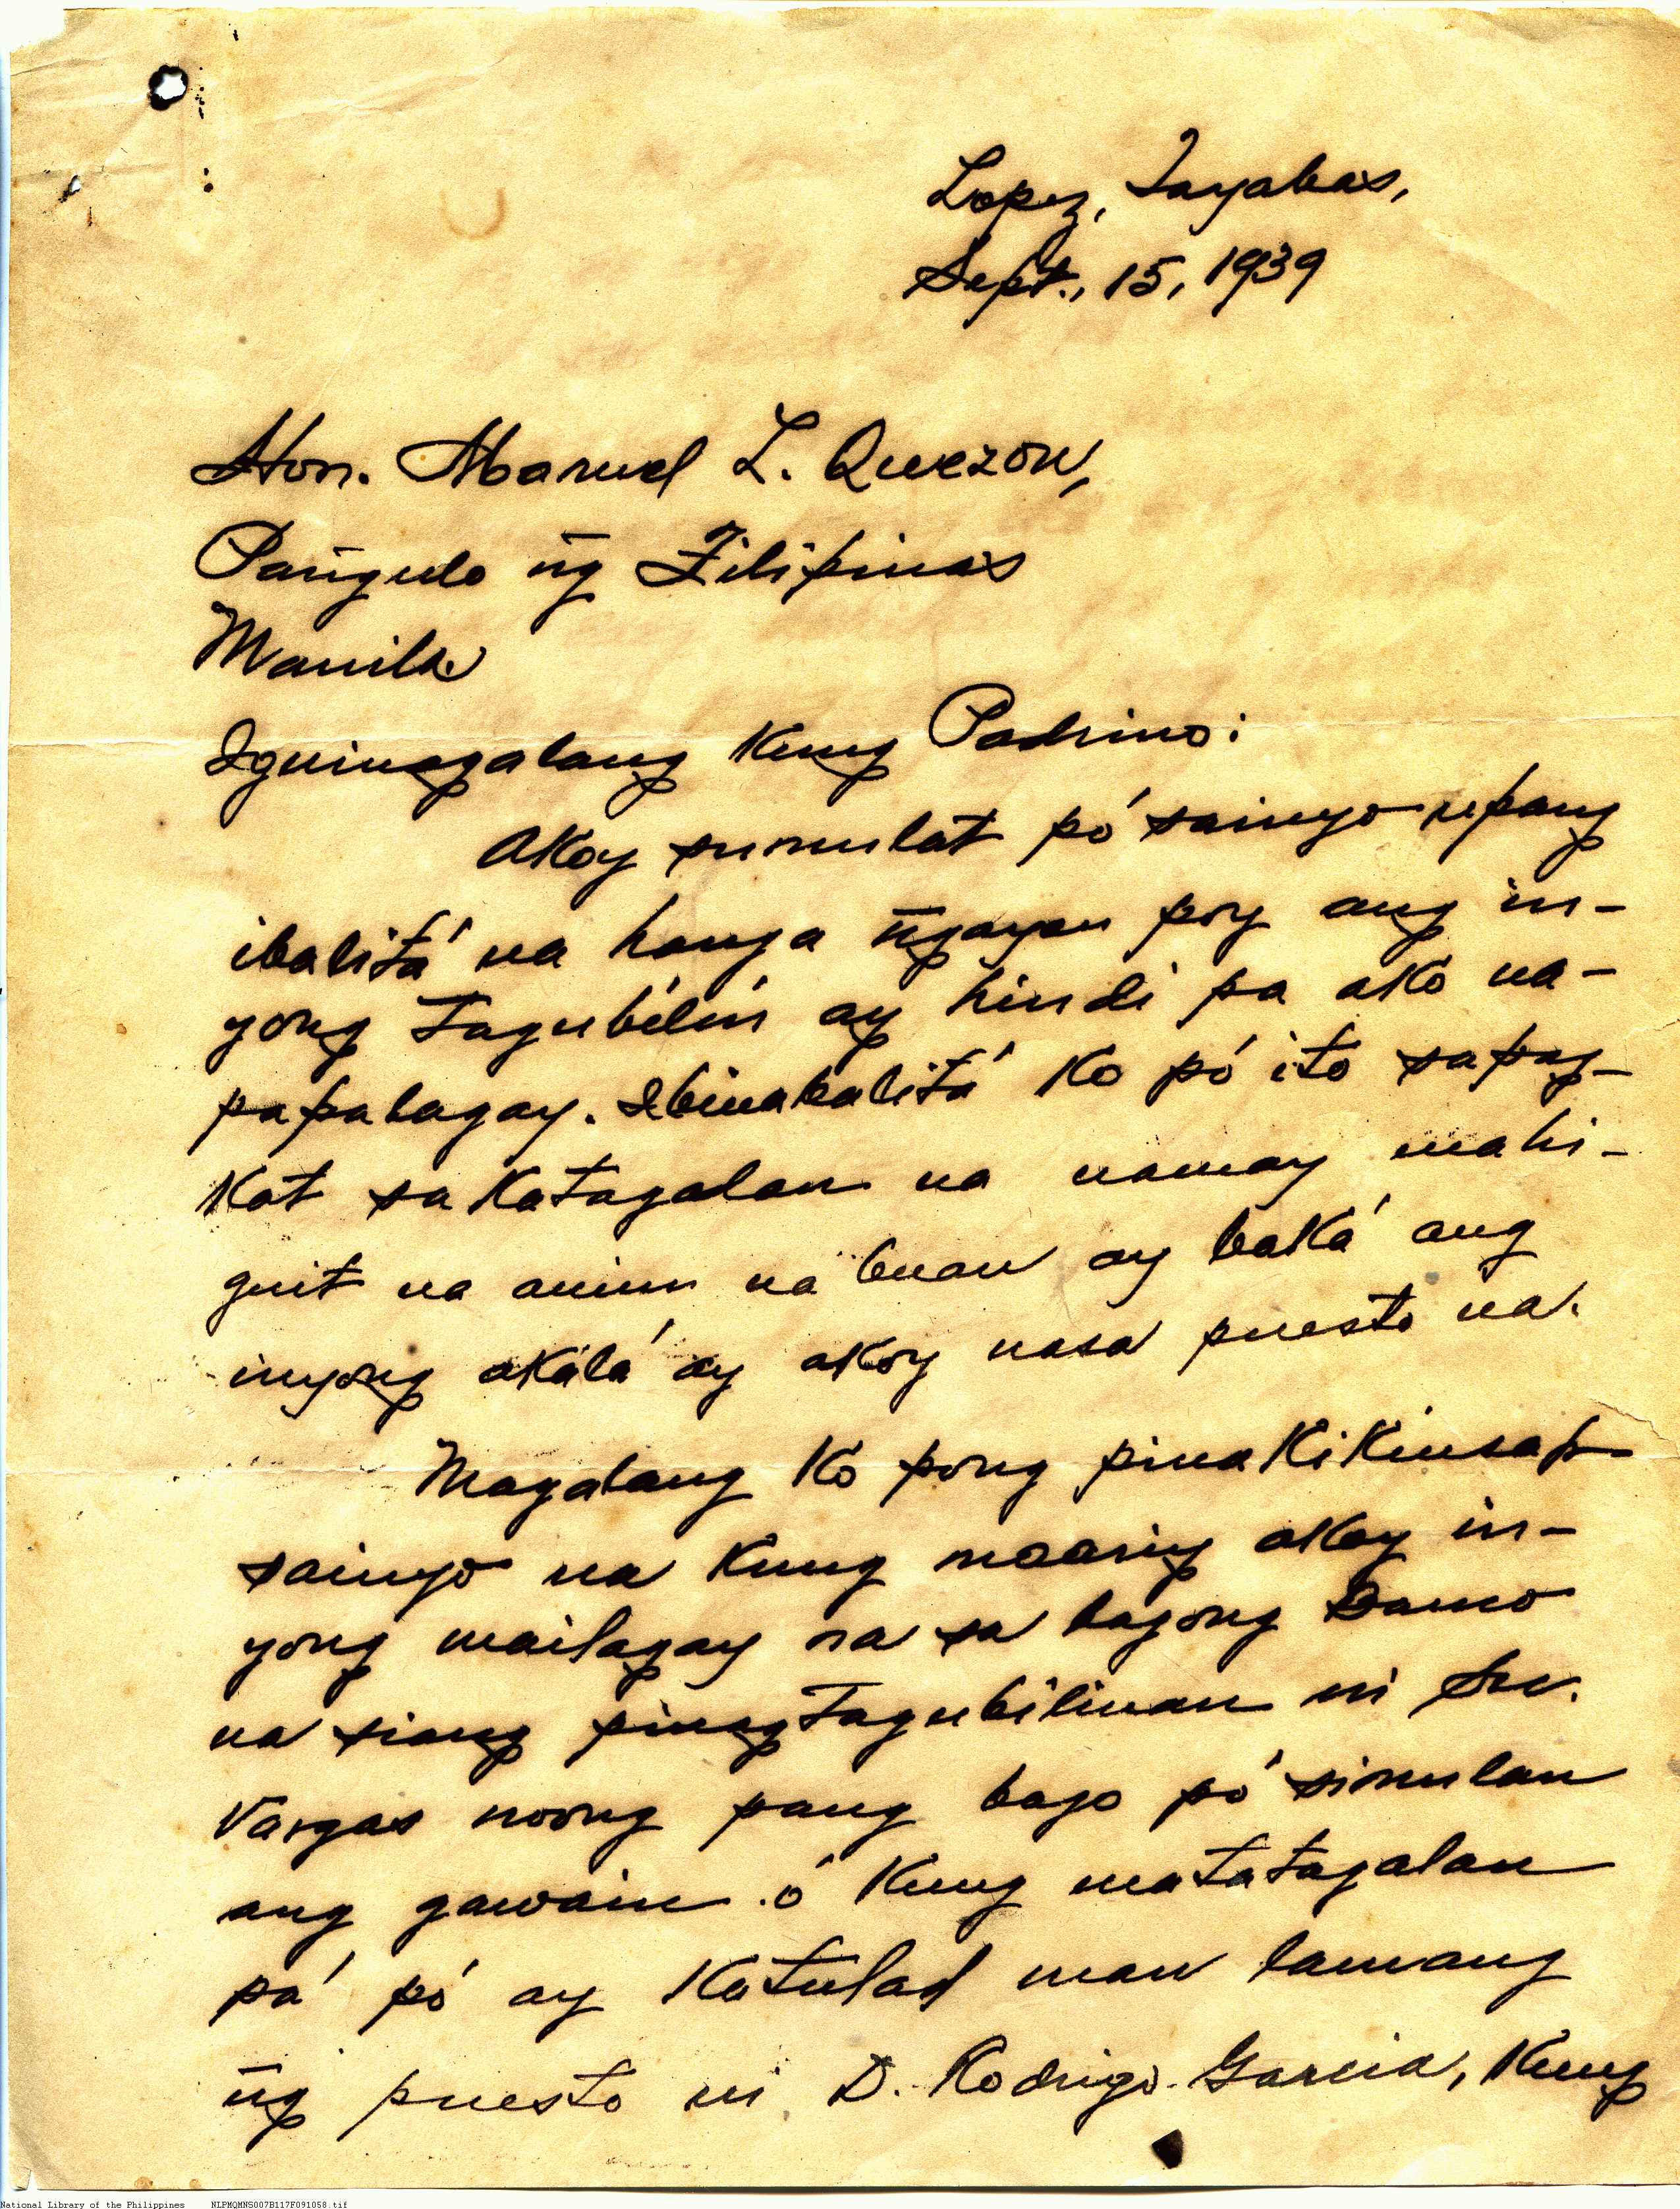 Lopez, Tayabas,
Sept., 15, 1939
Hon. Manuel L. Quezon,
Pañgulo ñg Filipinas
Manila
Iguinagalang kung Padrino:
Akoy sumulat pó sainyo upang
ibalitá na hanga ñgayon poy ang in-
yong tagubilin ay hindi pa ako na-
papalagay. Ibinabalitá ko pó ito sapag-
kat sa katagalan na namay mahi-
guit na anim na buan ay baká ang
inyong akálá ay akoy nasa puesto na.
Magalang ko pong pinakikiusap
sainyo na kung maaring akoy in-
yong mailagay na sa bagong Banco
na siang pinagtagubilinan ni Sec.
Vargas noong pang bago pó simulan
ang gawain ó kung matatagalan
pá pó ay katulad man lamang
ñg puesto ni D. Rodrigo Garcia, kung
National Library of the Philippines NLPMQMNS007B117F091058.tif